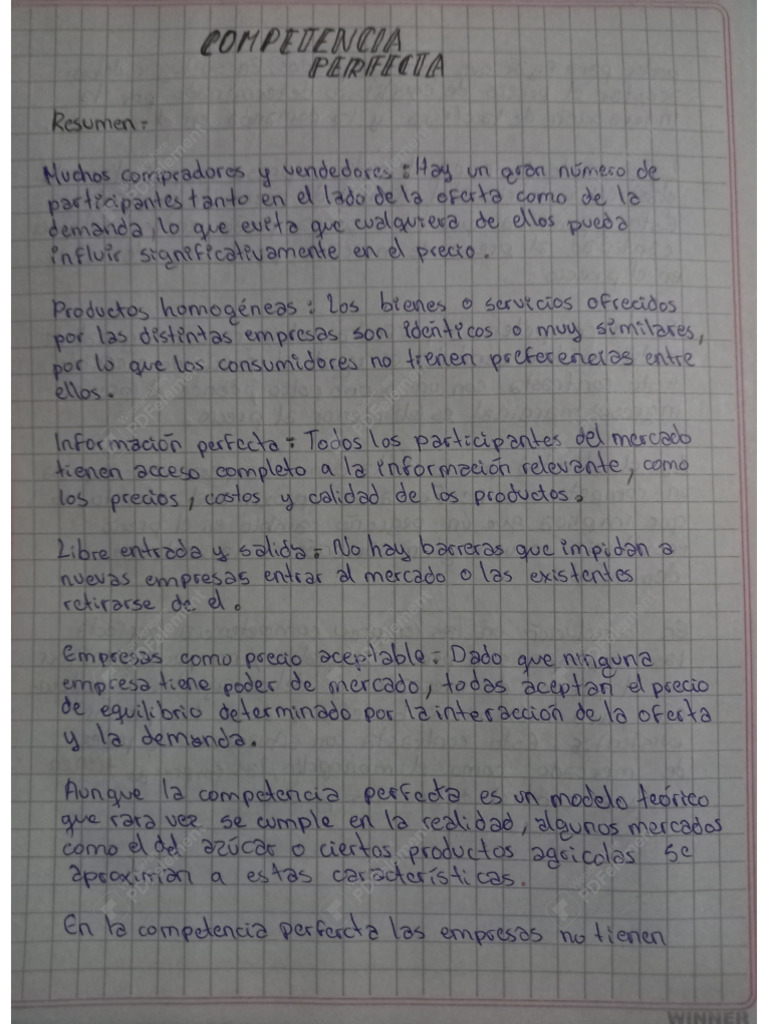 COMPETENCIA
PERFECTA
Resumen:
Muchos compradores y vendedores: Hay un gran número de
participantes tanto en el lado de la oferta como de la
demanda, lo que evita que cualquiera de ellos pueda
influir significativamente en el precio.
Productos homogéneas: Los bienes o servicios ofrecidos
por las distintas empresas son idénticos o muy similares,
por lo que los consumidores no tienen preferencias entre
ellos.
Información perfecta: Todos los participantes del mercado
tienen acceso completo a la información relevante, como
los precios, costos y calidad de los productos.
Libre entrada y salida: No hay barreras que impidan a
nuevas empresas entrar al mercado o las existentes
retirarse de el.
Empresas como precio aceptable: Dado que ninguna
empresa tiene poder de mercado, todas aceptan el precio
de equilibrio determinado por la interacción de la oferta
y la demanda.
Aunque la competencia perfecta es un modelo teórico
que rara vez se cumple en la realidad, algunos mercados
como el del azúcar o ciertos productos agricolas se
aproximan a estas características.
En la competencia perfercta las empresas no tienen
WINNER
PDFelement